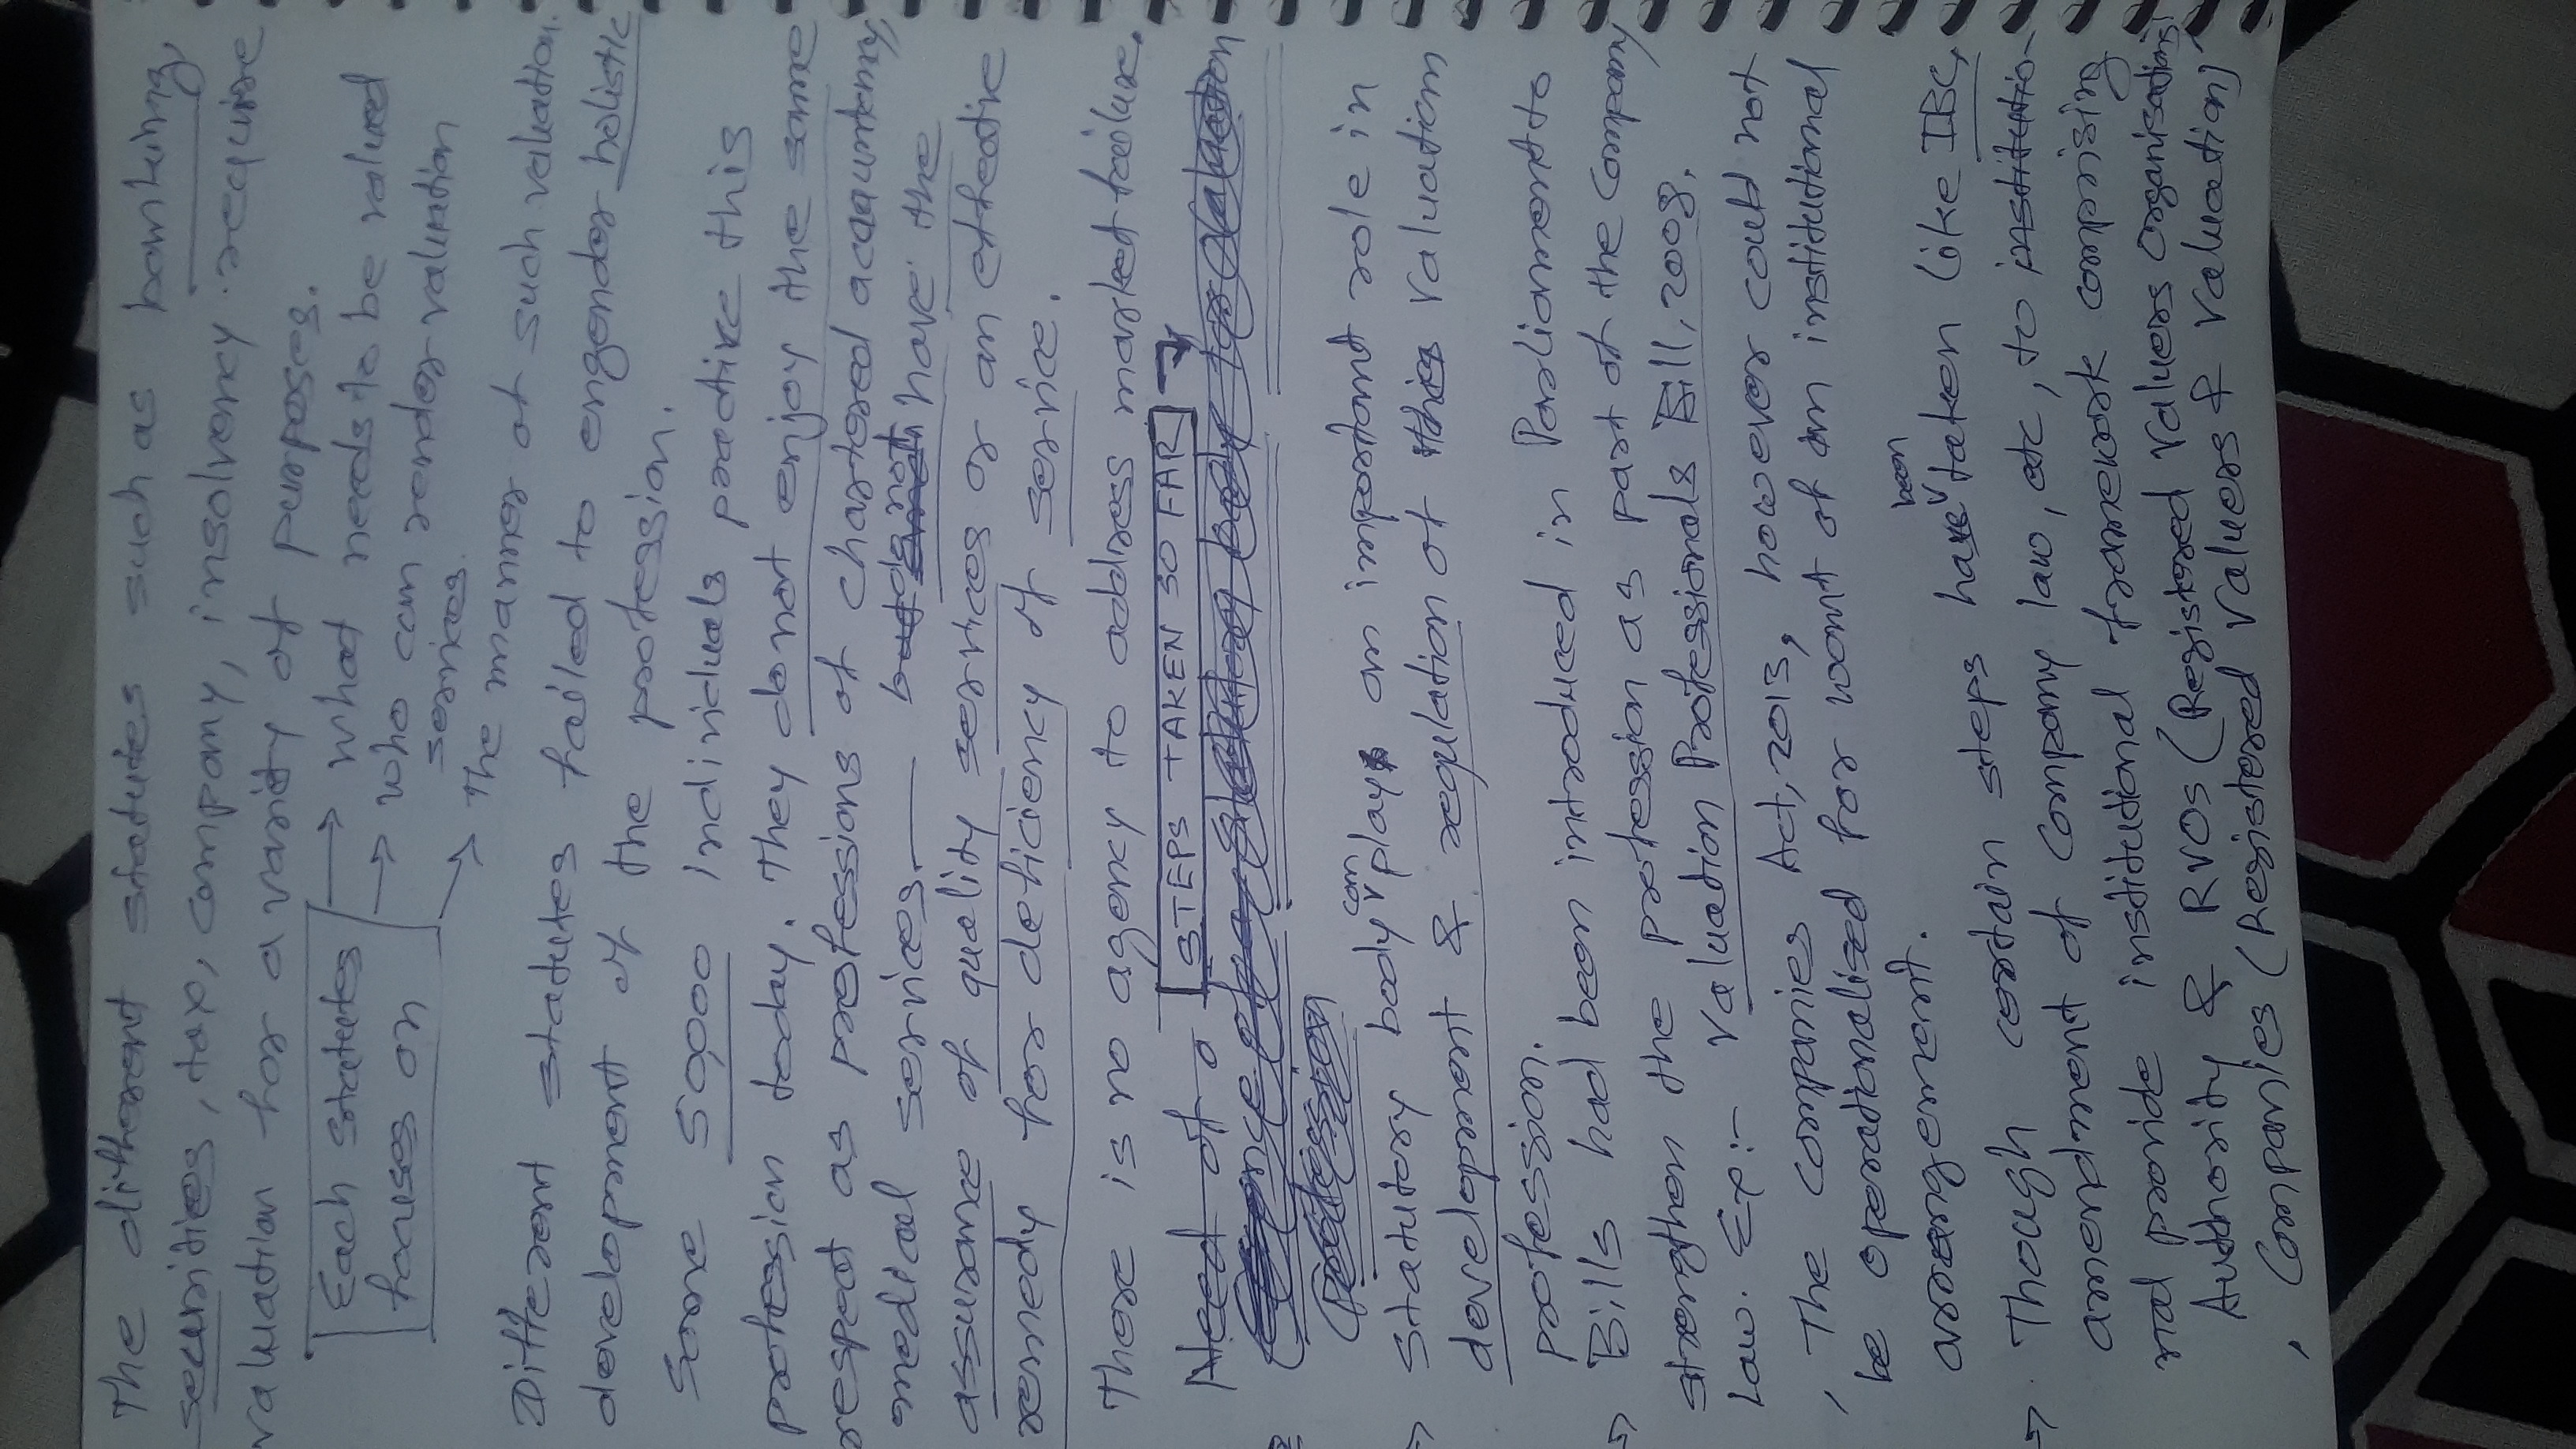 The different statutes such as banking,
securities, tax, company, insolvency require
valuation for a variety of purposes.
Each statutes focuses on → what needs to be valued
→ who can render valuation
services.
→ The manner of such valuation.
Different statutes failed to engender holistic
development of the profession.
Some 50,000 individuals practive this
profession today. They donot enjoy the same
respect as professions of chartered accountany,
medical services. have the
assurance of quality services or an effective
remedy for deficiency of service.
There is no agency to address market failure.
STEPS TAKEN SO FAR
Need of a
Profession
→ Statutory body can play an important role in
development & regulation of this valuation
profession.
→ Bills had been introduced in Parliament to
strengthen the profession as part of the company
law. Exp:- Valuation Professionals Bill, 2008.
, The companies Act, 2013, however coult not
be operationalised for want of an institutional
arrangement.
→ Though certain steps have been taken like IBC,
amendment of company law, etc, to institutio-
nal provide institutional framework comprising
Authority & RVOs (Registered Valuers Organisations)
, Companies (Registered Valuers & Valuation)